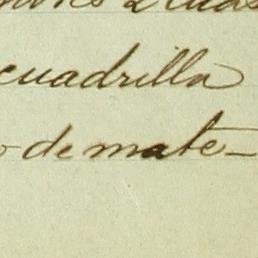 cuadrilla
o de mate-